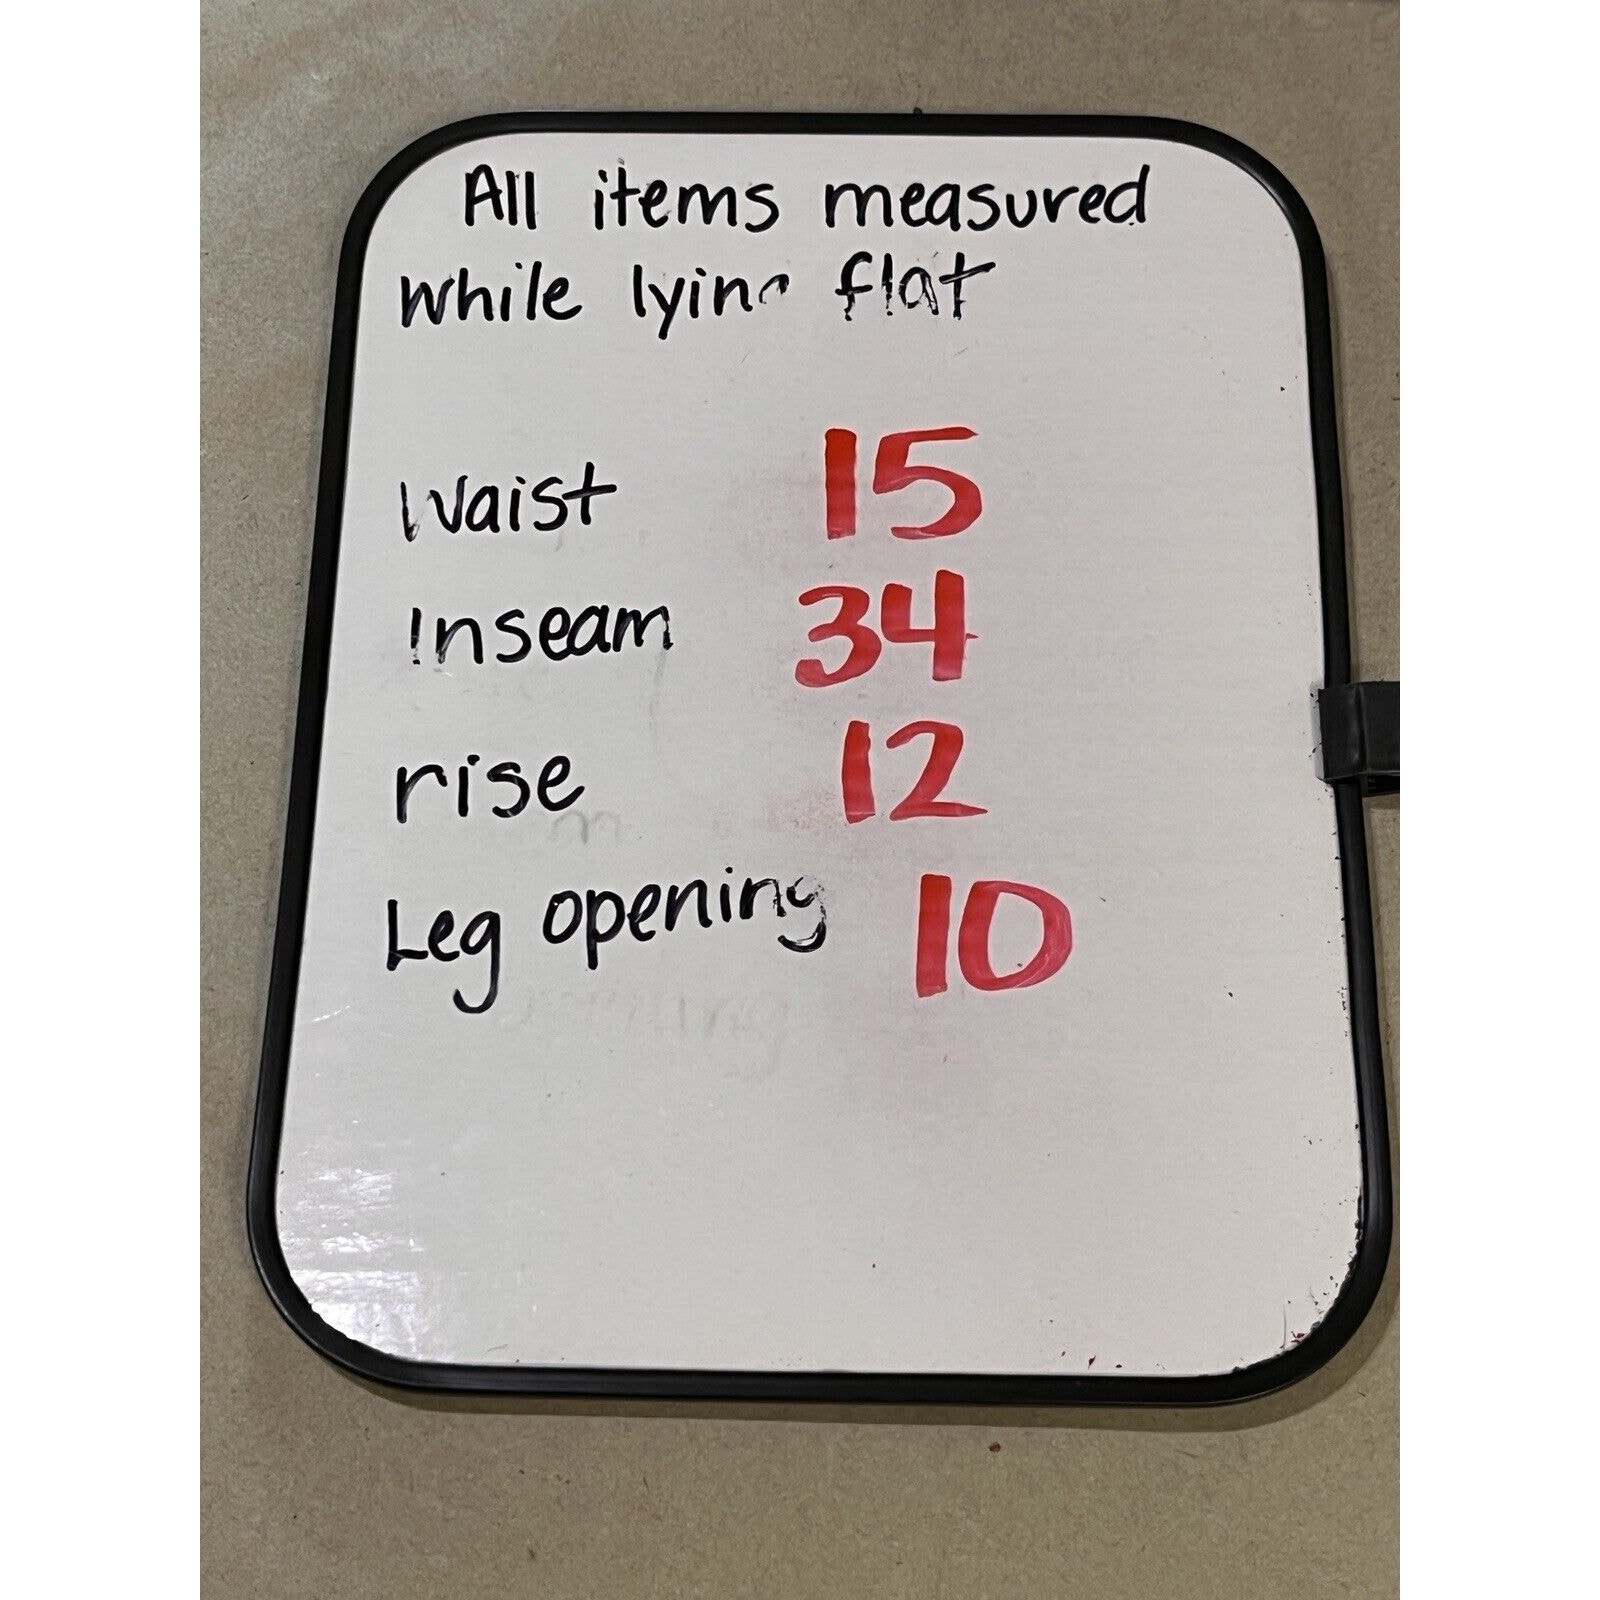 All items measured
while lying flat
Waist 15
Inseam 34
rise 12
Leg opening 10